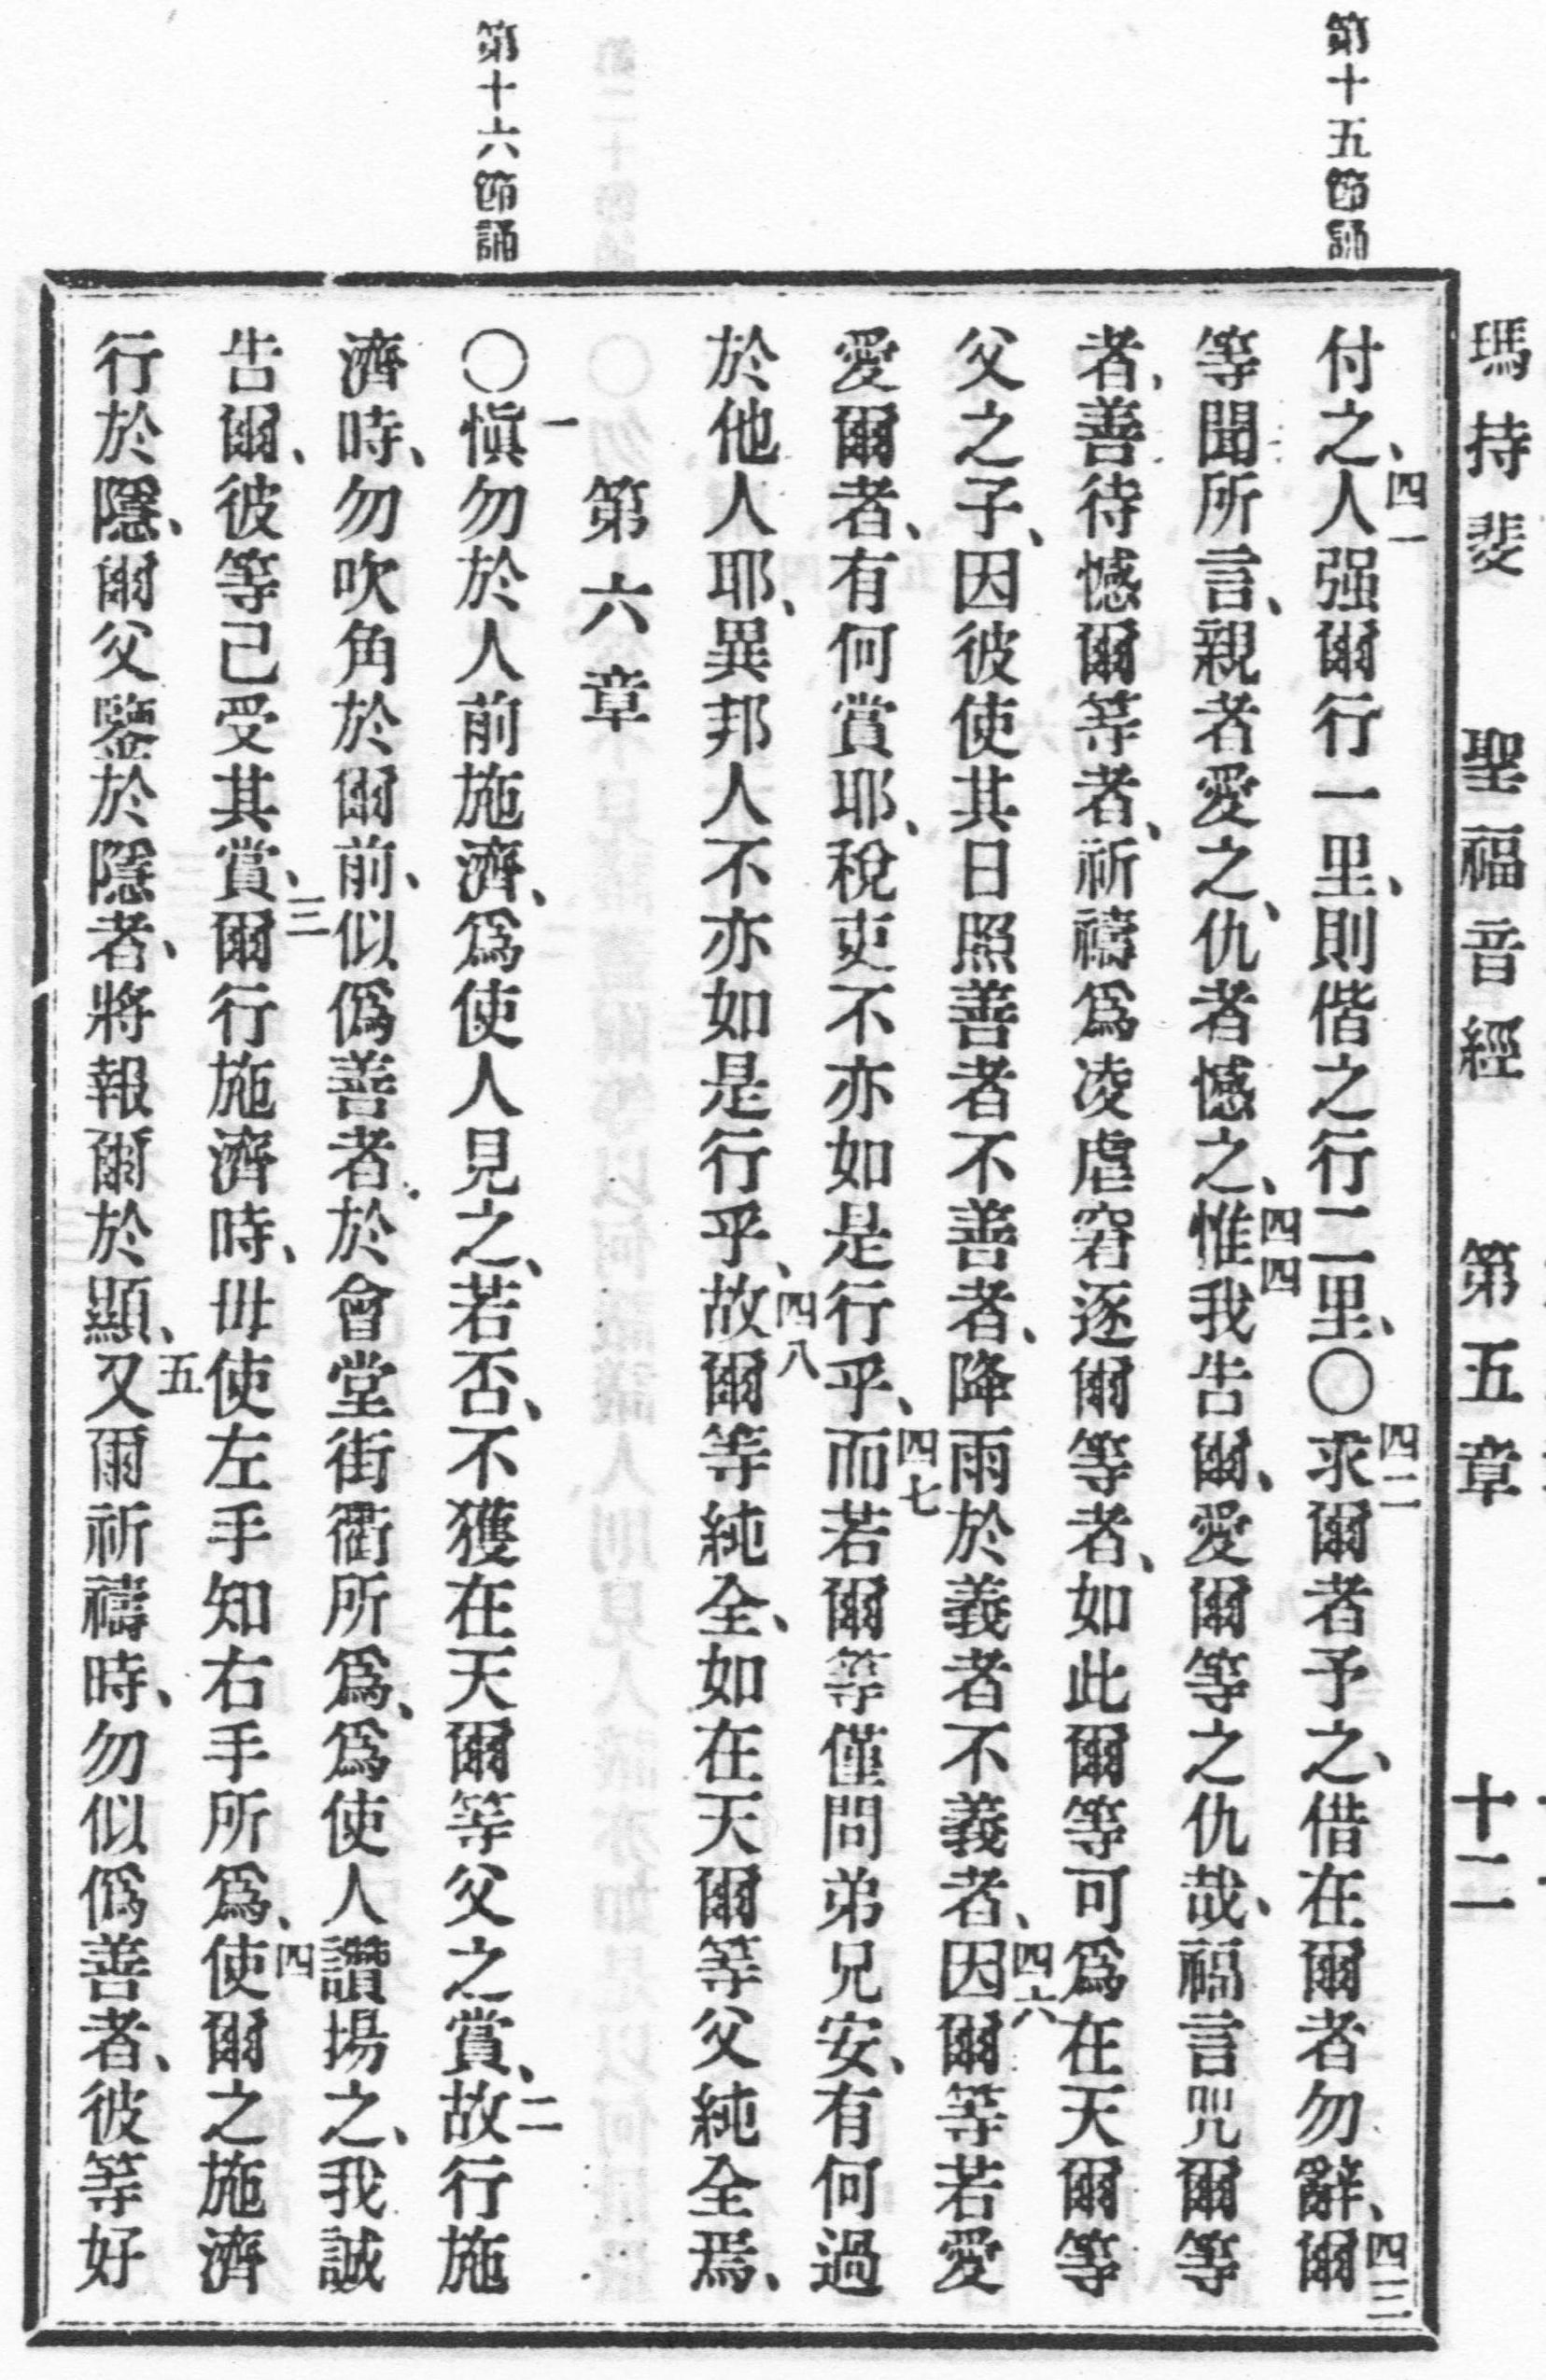 瑪持斐 聖福音經 第五章 十二
第十五節誦
付之、四一人强爾行一里、則偕之行二里、〇四二求爾者予之、借在爾者勿辭、四三爾
等聞所言、親者愛之、仇者憾之、四四惟我告爾、愛爾等之仇哉、福言咒爾等
者、善待憾爾等者、祈禱爲凌虐窘逐爾等者、如此爾等可爲在天爾等
父之子、因彼使其日照善者不善者、降雨於義者不義者、四六因爾等若愛
愛爾者、有何賞耶、稅吏不亦如是行乎、四七而若爾等僅問弟兄安、有何過
於他人耶、異邦人不亦如是行乎、四八故爾等純全、如在天爾等父純全焉、
第六章
第十六節誦
〇一愼勿於人前施濟、爲使人見之、若否、不獲在天爾等父之賞、二故行施
濟時、勿吹角於爾前、似僞善者、於會堂街衢所爲、爲使人讚揚之、我誠
告爾、彼等己受其賞、三爾行施濟時、毌使左手知右手所爲、四使爾之施濟
行於隱、爾父鑒於隱者、將報爾於顯、五又爾祈禱時、勿似僞善者、彼等好